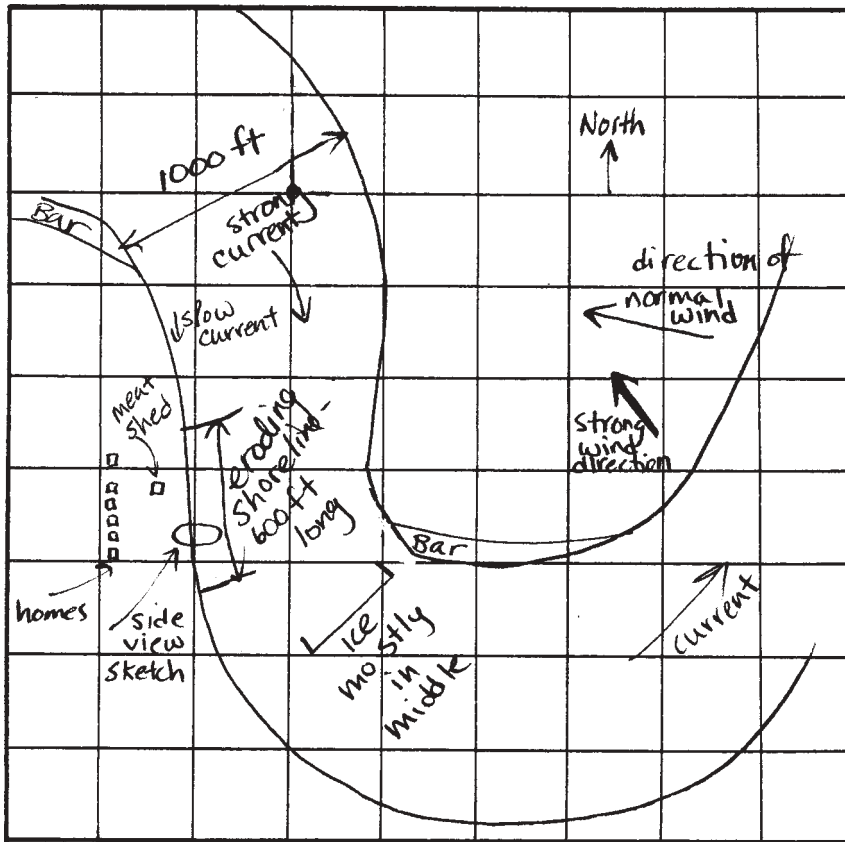 1000 ft
North
Bar
strong
current
direction of
normal
wind
slow
current
meat
shed
eroding
shoreline-
600 ft
long
strong
wind
direction
Bar
homes
side
view
sketch
ice
mostly
in
middle
current